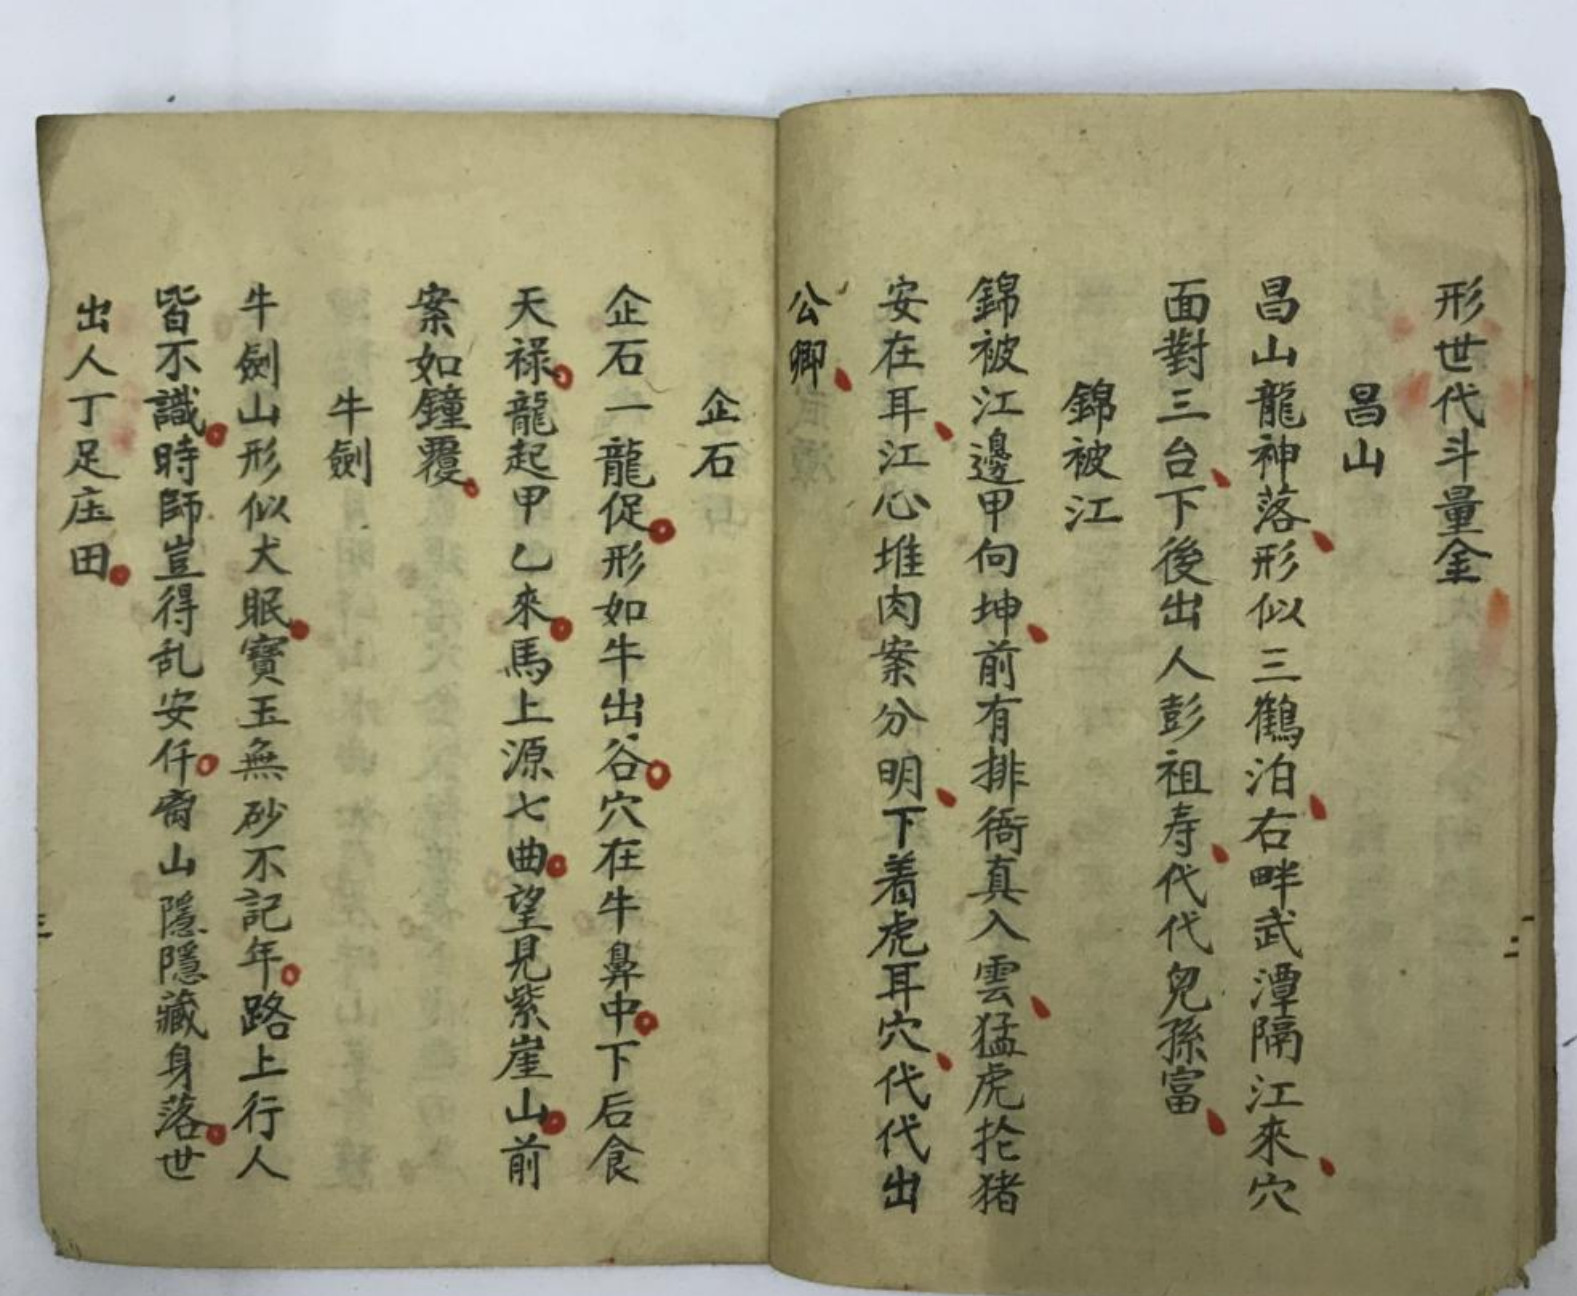 形世代斗量金
昌山
昌山龍神落形似三鶴泊右畔武潭隔江來穴
面對三台下後出人彭祖寿代代兒孫富
錦被江
錦被江邊甲向坤前有排衙真入雲猛虎抡猪
安在耳江心堆肉案分明下着虎耳穴代代出
公卿
二
企石
企石一龍促形如牛出谷穴在牛鼻中下后食
天禄龍起甲乙來馬上源七曲望見紫崖山前
案如鐘覆
牛劍
牛劍山形似犬眠寶玉無砂不記年路上行人
皆不識時師豈得乱安仟 山隱隱藏身落世
出人丁足庄田
三